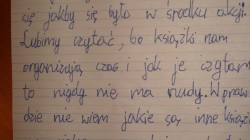 cię jakby się było w środku akcji.
Lubimy czytać, bo książki nam
organizują czas i jak je czytam
to nigdy nie ma nudy. Wpraw
dzie nie wiem jakie są inne książ